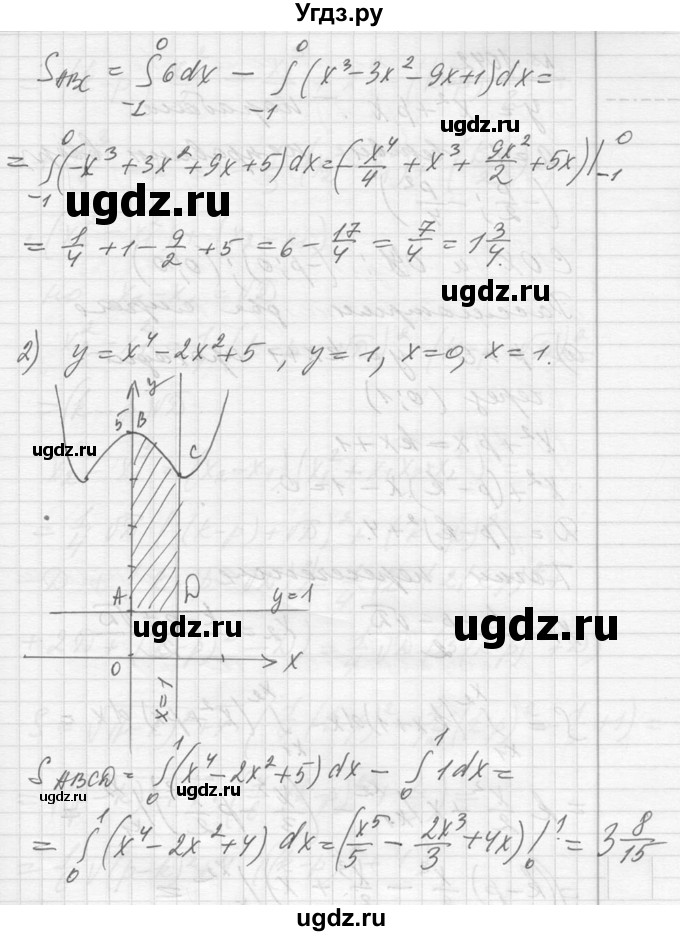 Угдз.ру
S_ABC = ∫₋₁⁰ 6dx − ∫₋₁⁰ (x³ − 3x² − 9x + 1)dx =
ugdz.ru
= ∫₋₁⁰ (−x³ + 3x² + 9x + 5)dx = (−x⁴/4 + x³ + 9x²/2 + 5x)|₋₁⁰
ugdz.ru
= 1/4 + 1 − 9/2 + 5 = 6 − 17/4 = 7/4 = 1 3/4.
ugdz.ru
2) y = x⁴ − 2x² + 5, y = 1, x = 0, x = 1.
y
5 B
C
ugdz.ru
A D y = 1
ugdz.ru
ugdz.ru
0 x
x = 1
S_ABCD = ∫₀¹ (x⁴ − 2x² + 5)dx − ∫₀¹ 1dx =
ugdz.ru
= ∫₀¹ (x⁴ − 2x² + 4)dx = (x⁵/5 − 2x³/3 + 4x)|₀¹ = 3 8/15
ugdz.ru